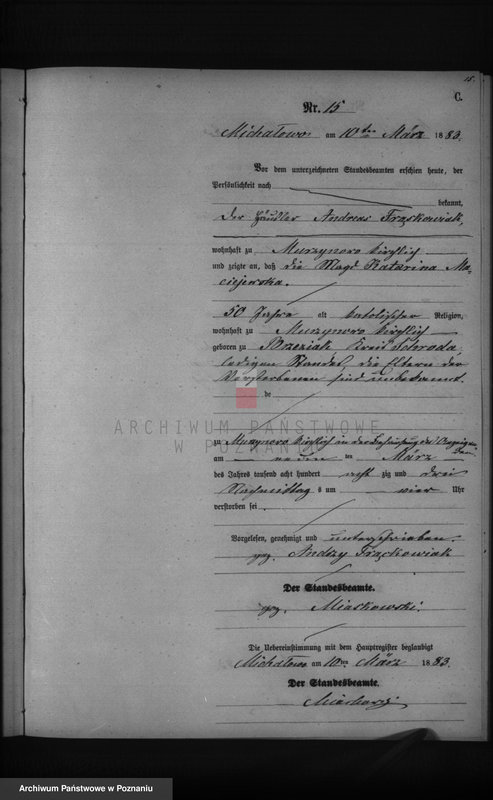 15.
C.
Nr. 15
Michałowo am 10ten März 1883.
Vor dem unterzeichneten Standesbeamten erschien heute, der
Persönlichkeit nach
bekannt,
der Händler Andreas Frąckowiak,
wohnhaft zu Murzynowo kirchlich
und zeigte an, daß die Magd Katarina Ma-
ciejewska.
50 Jahre alt katolischer Religion,
wohnhaft zu Murzynowo kirchlich
geboren zu Brzeziak Kreis Schroda
ledigen Standes, die Eltern der
Verstorbenen sind unbekannt.
de
ARCHIWUM PAŃSTWOWE
W POZNANIU
zu Murzynowo kirchlich in der Behausung des Anzeigen-
den
am neun ten März
des Jahres tausend acht hundert acht zig und drei
Nachmittag s um vier Uhr
verstorben sei.
Vorgelesen, genehmigt und unterschrieben.
gez. Andrzy Frąckowiak
Der Standesbeamte.
gez. Miaskowski.
Die Uebereinstimmung mit dem Hauptregister beglaubigt
Michałowo am 10ten März 1883.
Der Standesbeamte.
Archiwum Państwowe w Poznaniu